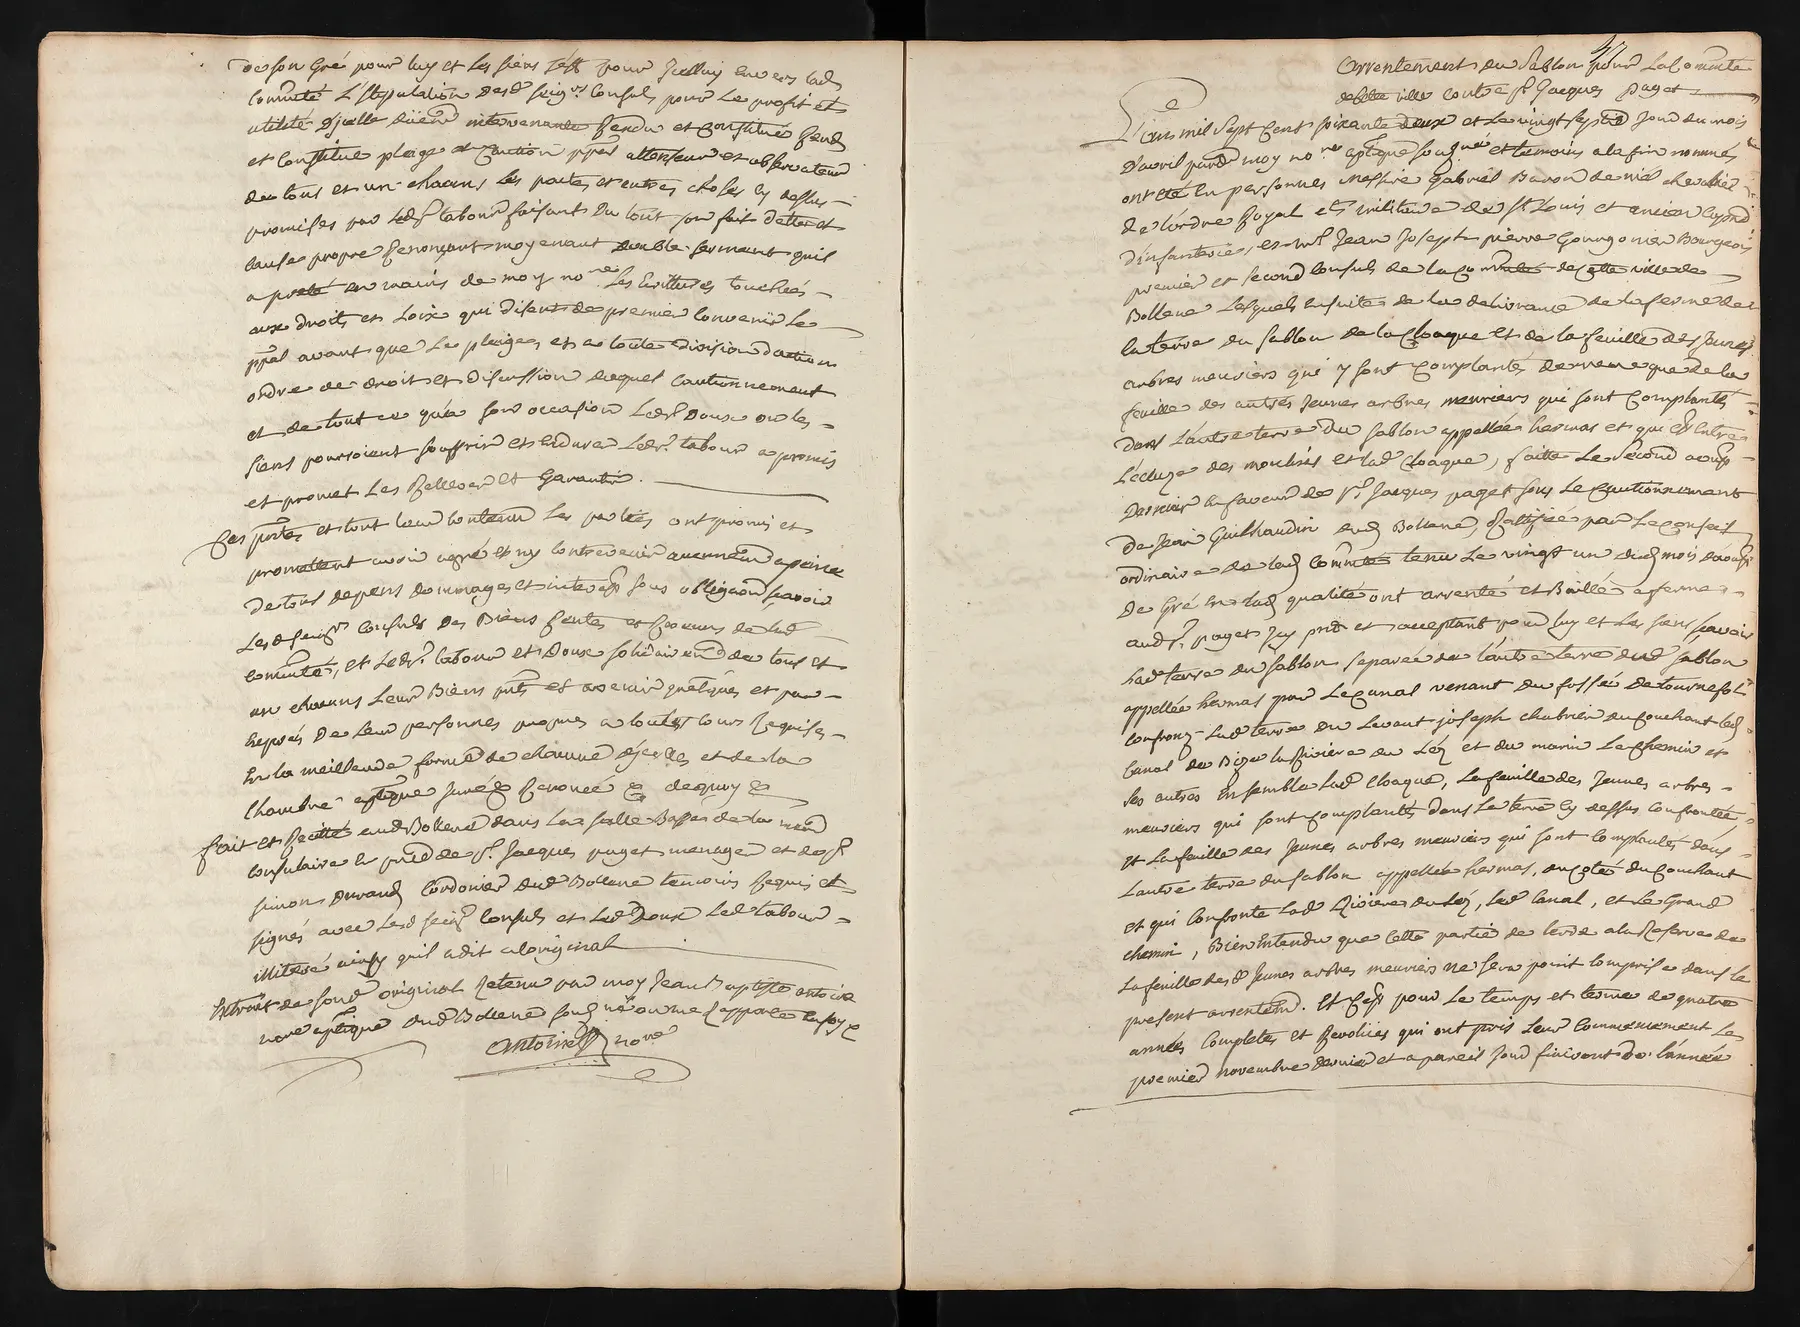 de son Gré pour luy et les siens s'est pour Jcelluy envers lad.
Com.té L'Stipulation desd. seig.rs Consuls pour Le profit et
utilité d'jcelle düem.t intervenante Rendu et Constitué Rend
et Constitue pleige et Caution p.pal attenseur et observateur
de tous et un chacuns les pactes et autres choses cy dessus
promises par led. s.r tabour faisant Du tout son fait dette et
cause propre Renonçant moyenant double serment quil
a preté en mains de moy no.re Les Ecritures touchées
aux droits et Loix qui disent de premier Convenir Le
p.pal avant que Le pleige, et a toute division d'action
ordre de droit et discussion duquel Cautionnement
et de tout ce qu'a son occasion Led. s.r Doux ou les
siens pourroient souffrir et Endurer Led. s.r tabour a promis
et promet Les Rellever et Garantir.
Ces p.ntes et tout leur Contenu Les parties ont promis et
promettent avoir agré et ny Contrevenir aucunem.t a peine
De tous depens Dommages et interets sous obligãon sçavoir
Lesd. seig.rs Consuls Des Biens Rentes et Revenus de lad.
Com.té, et Led. s.r tabour et Doux solidairem.t de tous et
un chacuns Leurs Biens p.nts et avenir quelqües et par
exprés De Leur personnes propres a toutes Cours Requises
En La meilleure forme de chacune d'jcelles et de la
Chambre aplique juré & Renoncé & dequoy &
fait et Recitté aud. Bollene dans La salle Basse de la mai.n
Consulaire En p.nce de s.r Jacques paget menager et de s.r
simon Durand Cordonier dud. Bollene temoins Requis et
signés avec Lesd. seig.rs Consuls et Led. s.r Doux Led. tabour
illiteré ainsy quil a dit a Loriginal
Extrait de son d. original Retenu par moy Jean Baptiste antoine
no.re aplique dud. Bollene sous.né no.re ou me Rapporte En foy &
Antoine no.re
47
Arrentement du Sablon pour La Com.té
de cette ville contre s.r Jacques Paget
L'an mil Sept Cent soixante deux et Le vingt sept.e Jour du mois
D'avril pard.t moy no.re aplique sous.né et temoins a la fin nommés
ont eté En personnes Messire Gabriel Baron de niel chevalier
de L'ordre Royal et militaire de s.t Louis et ancien Cap.ne
d'infanterie, et m.r Jean Joseph pierre Gourgonier Bourgeois
premier et second Consuls de la Com.té de Cette ville de
Bollene Lesquels Ensuite de La delivrance de la ferme de
La terre du sablon de la Cloaque et de La feuille des jeunes
arbres meuriers qui y sont Complantés de meme que de La
feuille des autres Jeunes arbres meuriers qui sont Complantés
Dans Lautre terre du sablon appellée hermas et qui est Entre
L'ecluze des moulins et lad. Cloaque, faitte Le second aoust
Dernier En faveur de s.r Jacques paget sous Le Cautionnement
de Jean Guilhaudin dud. Bollene, Ratiffiée par Le Conseil
ordinaire de lad. Com.té tenu Le vingt un dud. mois daoust
De Gré En lad. qualité ont arrenté et Baillé a ferme
aud. s.r paget Jcy p.nt et acceptant pour luy et Les siens sçavoir
Lad. terre du sablon separée de l'autre terre dud. sablon
appellée hermas par Le Canal venant du fossé De tournefol
Confronz. Lad. terre du Levant joseph chabrier du Couchant led.
Canal de Bize La Riviere du Léz et du marin Le chemin et
ses autres Ensemble Lad. Cloaque, La feuille des jeunes arbres
meuriers qui sont Complantés dans La terre cy dessus Confrontée
Et La feuille des Jeunes arbres meuriers qui sont Complantés dans
Lautre terre du sablon appellée hermas, du Coté du Couchant
et qui Confronte Lad. Riviere du Léz, led. Canal, et Le Grand
chemin, Bien Entendu que Cette partie de terre a la Reserve de
La feuille desd. Jeunes arbres meuriers ne sera point Comprise dans Le
present arrentem.t. Et C'est pour Le temps et terme de quatre
années Completes et Revolües qui ont pris Leur Commencement Le
premier novembre dernier et a pareil Jour finiront de l'année